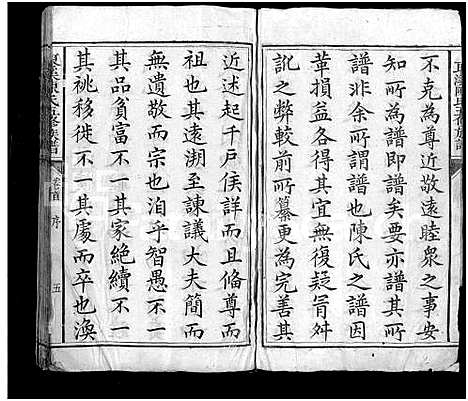 不克為尊近敬遠睦衆之事安
知所為譜即譜矣要亦譜其所
譜非余所謂譜也陳氏之譜因
革損益各得其宜無復疑冐舛
訛之弊較前所纂更為完善其
近述起千戶侯詳而且備尊而
祖也其遠溯至諫議大夫簡而
無遺敬而宗也洎乎智愚不一
其品貧富不一其家絶續不一
其祧移徙不一其處而卒也渙
卷首 序 五